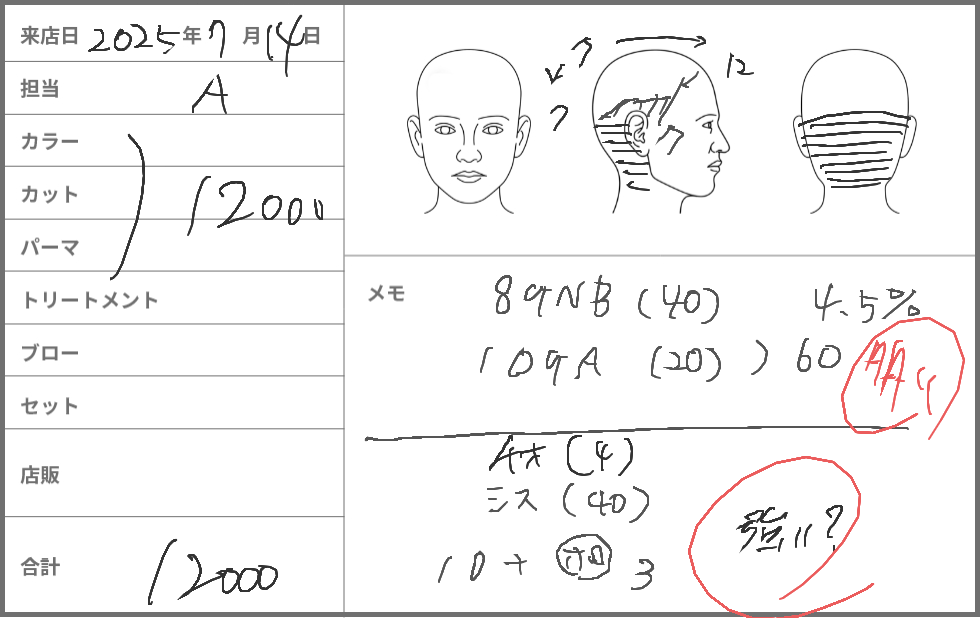 来店日 2025年7月14日
担当 A
カラー
カット 12000
パーマ
トリートメント
ブロー
セット
店販
合計 12000
7
7
12
メモ
89NB (40) 4.5%
109A (20) ) 60 明るく
(4)
シス (40)
10+ 3
強い?